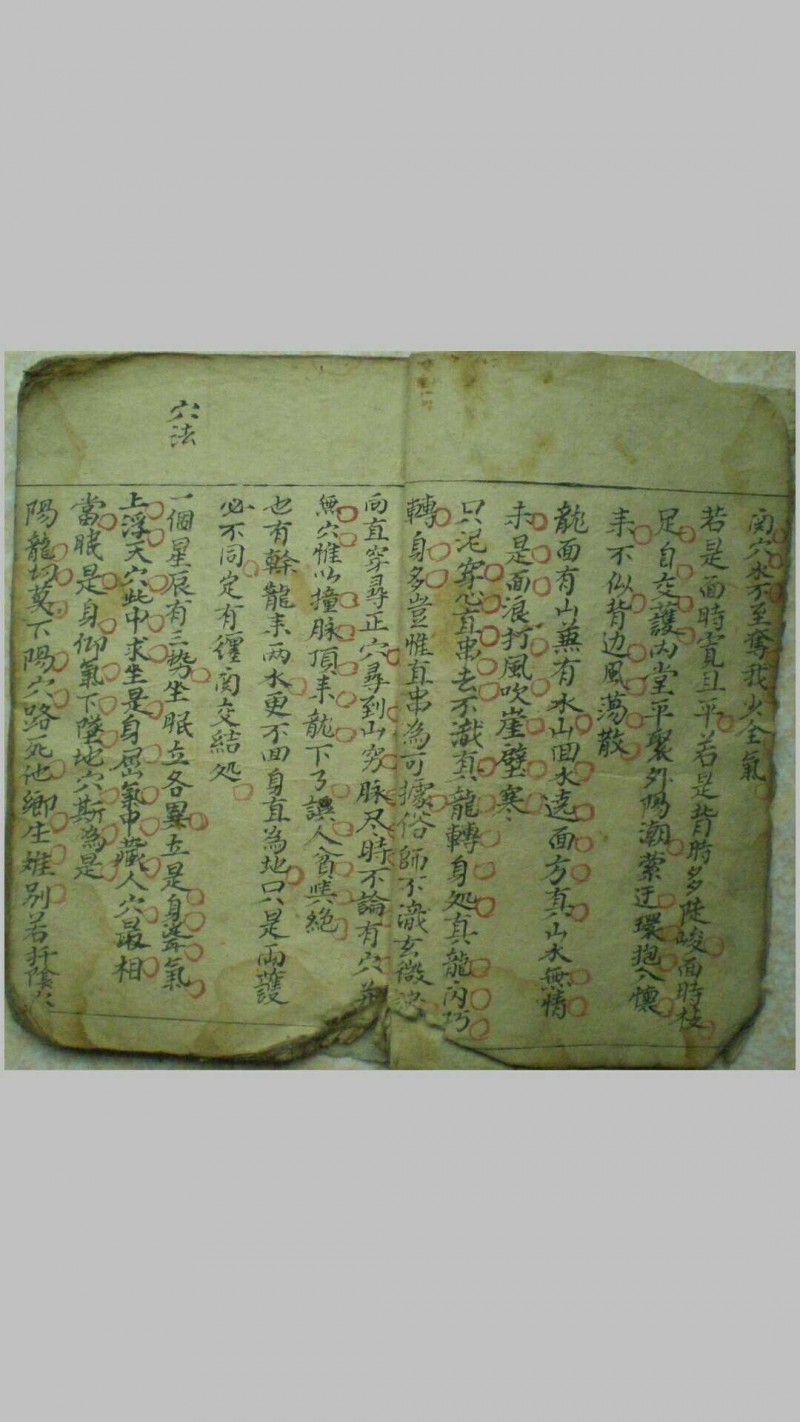 穴水不至奪我火全氣
若是面時寬且平若是背時多陡峻面時枝
足自交護內堂平聚外陽潮縈迂環抱入懷
来不似背边風蕩散
龍面有山兼有水山回水遶面方真山水無情
未是面浪打風吹崖壁寒
只泥穿心直串去不識真龍轉身処真龍內巧
轉身多豈惟直串為可據俗師不識玄微
向直穿尋正穴尋到山穷脉尽時不論有穴並
無穴惟以撞脉頂来龍下了誤人貧與絕
也有幹龍来两水更不回身直為地只是両護
必不同定有纏交結処
穴法
一個星辰有三勢坐眠立各異立是身聳氣
上浮天穴此中求坐是身屈氣中藏人穴最相
當眠是身仰氣下墜地穴斯為是
陽龍切莫下陽穴路死他鄉生離别若扦陰穴